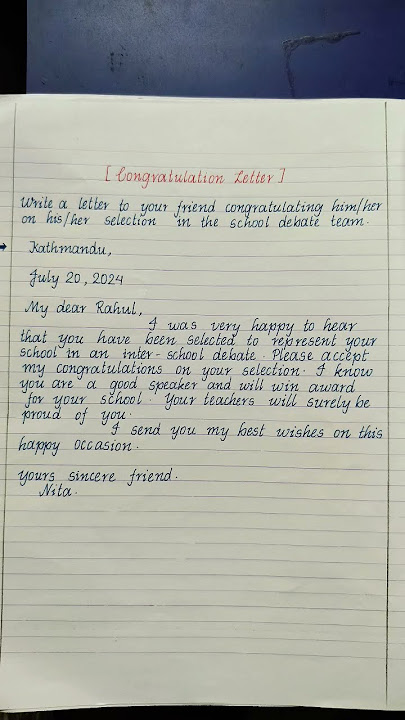 [Congratulation Letter]
Write a letter to your friend congratulating him/her
on his/her selection in the school debate team.
→ Kathmandu,
July 20, 2024
My dear Rahul,
I was very happy to hear
that you have been selected to represent your
school in an inter-school debate. Please accept
my congratulations on your selection. I know
you are a good speaker and will win award
for your school. Your teachers will surely be
proud of you.
I send you my best wishes on this
happy occasion.
yours sincere friend.
Nita.